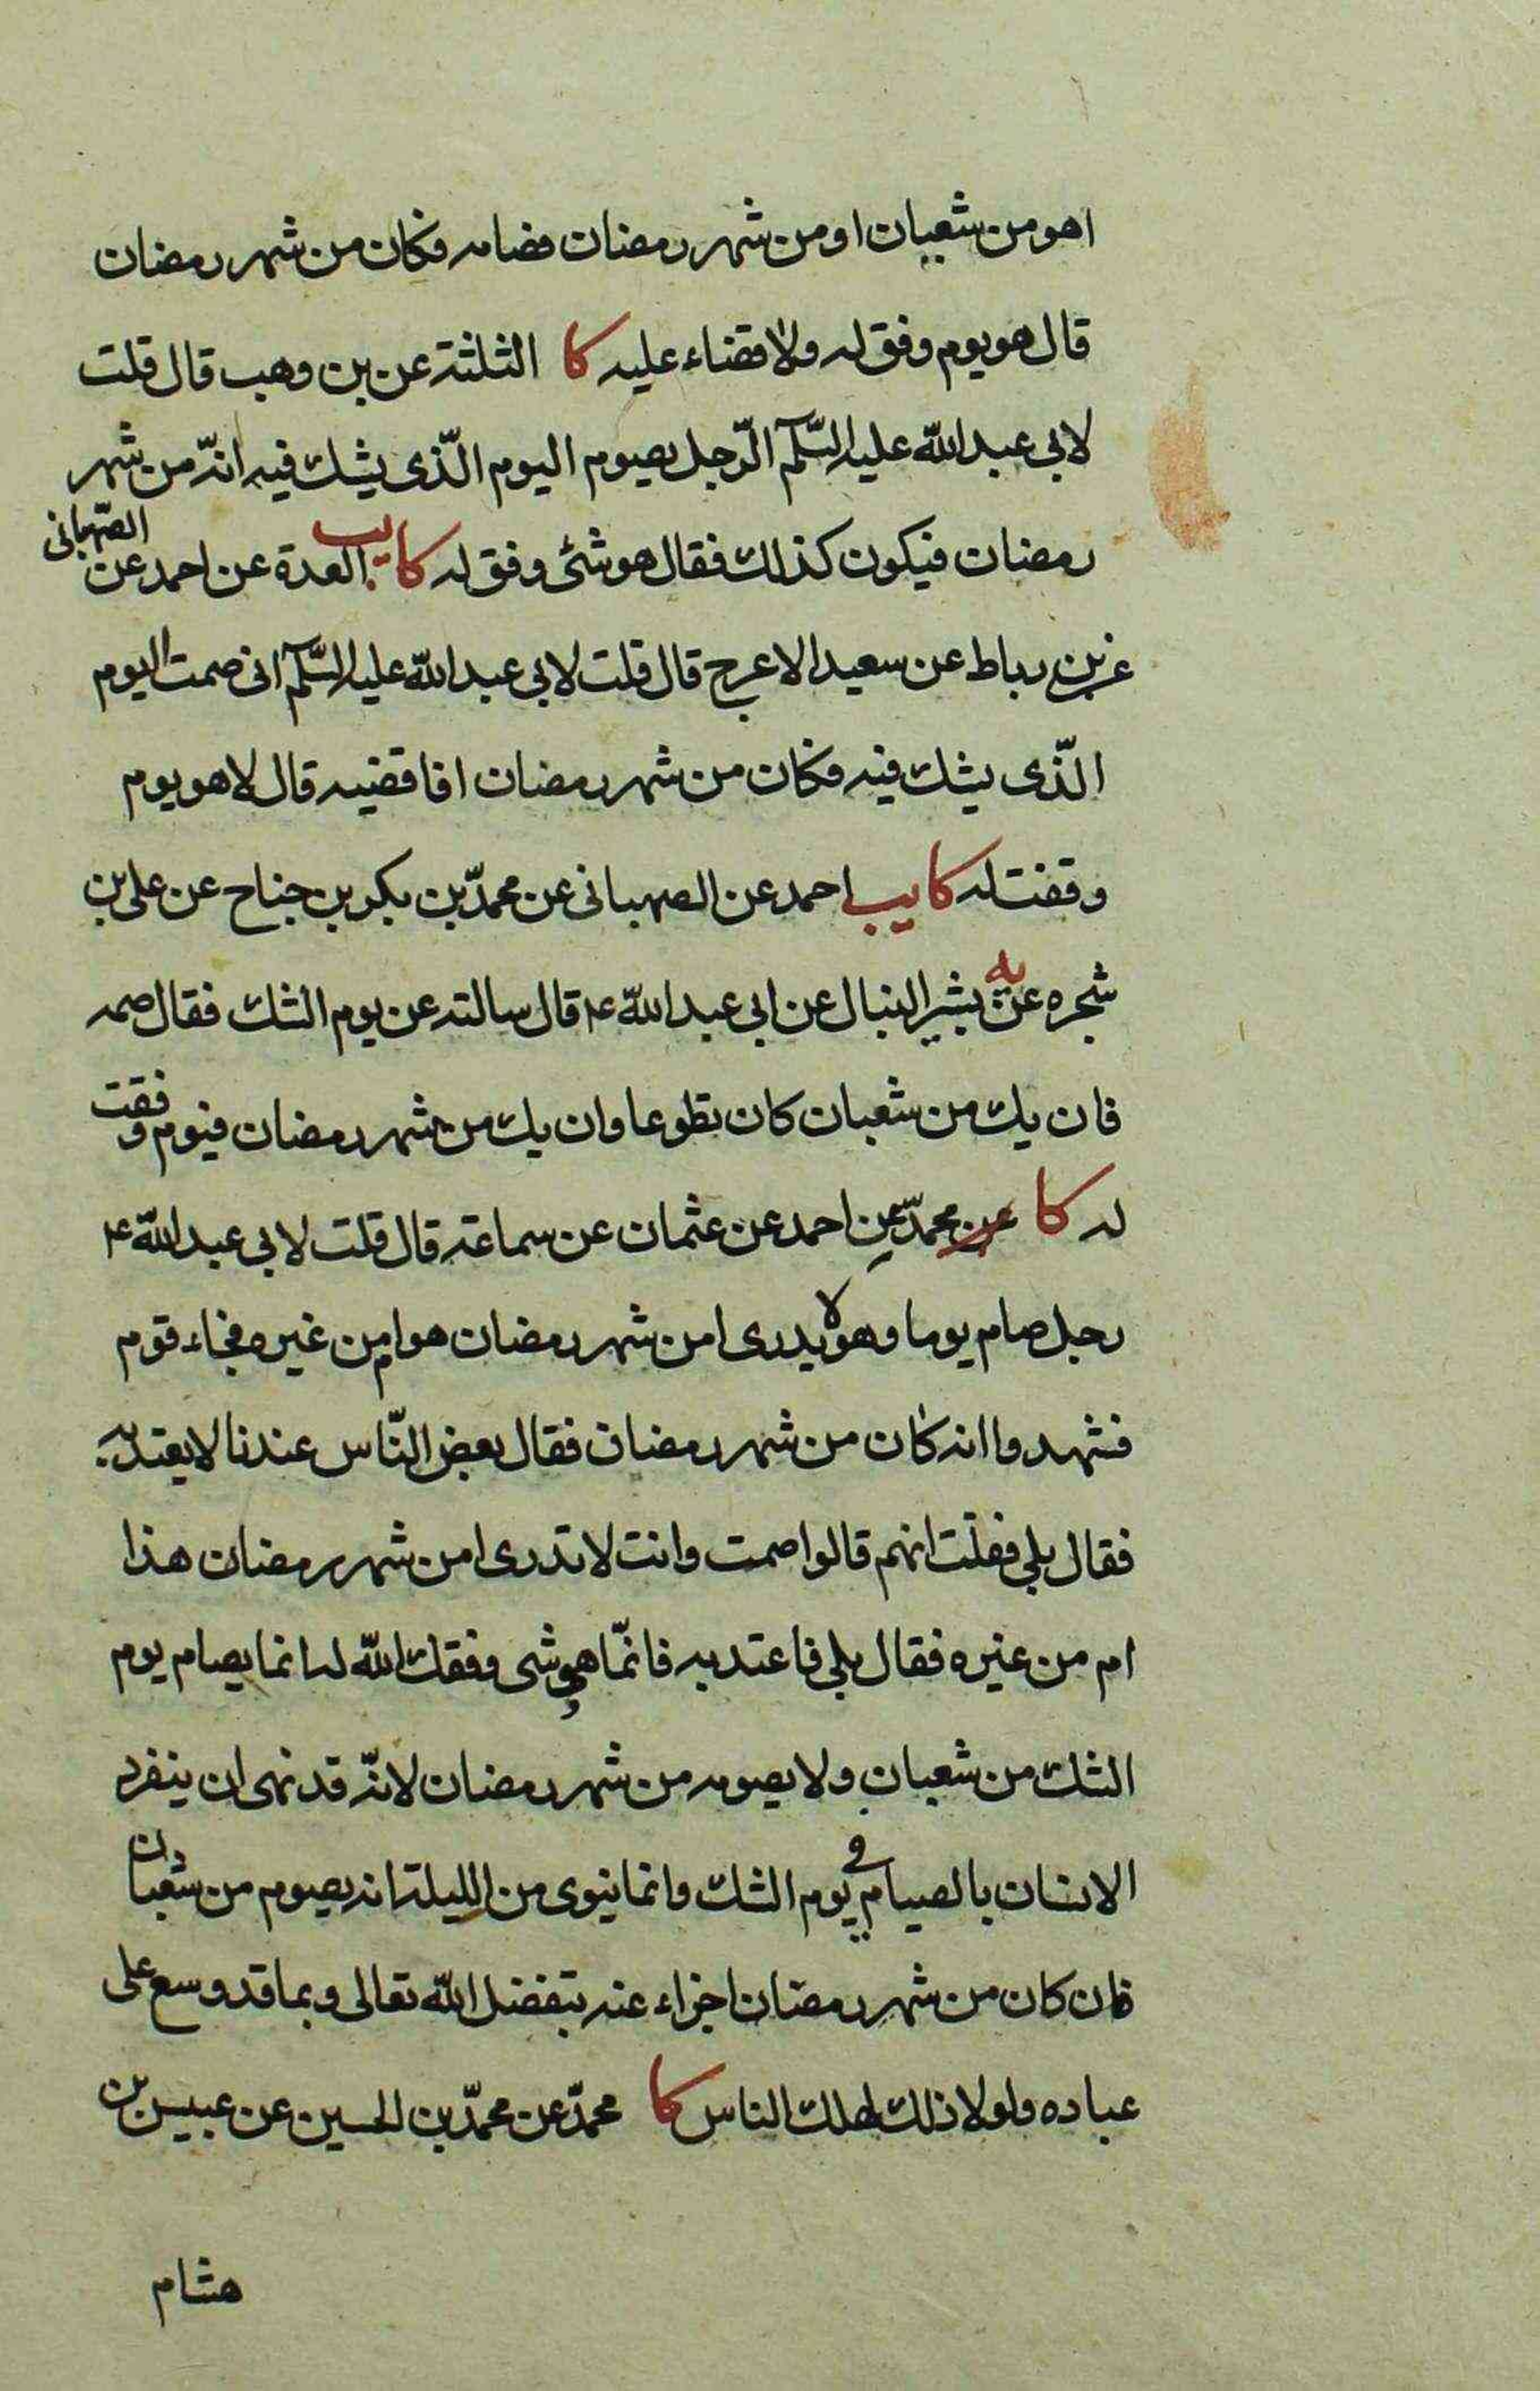 اهو من شعبان او من شهر رمضان فصامه فكان من شهر رمضان
قال هو يوم وفق له ولا قضاء عليه كا الثلثة عن بن وهب قال قلت
لابى عبد الله عليه السّلم الرّجل يصوم اليوم الّذى يشك فيه انّه من شهر
رمضان فيكون كذلك فقال هو شئ وفق له كا يب العدة عن احمد عن الصّهبانى
عن بن رباط عن سعيد الاعرج قال قلت لابى عبد الله عليه السّلم انى صمت اليوم
الّذى يشك فيه فكان من شهر رمضان افاقضيه قال لا هو يوم
وفقت له كا يب احمد عن الصهبانى عن محمّد بن بكر بن جناح عن على بن
شجره عن يه بشير النبال عن ابى عبد الله ع قال سالته عن يوم الشك فقال صمه
فان يك من شعبان كان تطوعا وان يك من شهر رمضان فيوم وفقت
له كا عن محمّد عن احمد عن عثمان عن سماعة قال قلت لابى عبد الله ع
رجل صام يوما وهو لا يدرى امن شهر رمضان هو ام من غيره فجاء قوم
فشهدوا انه كان من شهر رمضان فقال بعض النّاس عندنا لا يعتد به
فقال بلى فقلت انهم قالوا صمت وانت لا تدرى امن شهر رمضان هذا
ام من غيره فقال بلى فاعتد به فانّما هو شى وفقك الله له انما يصام يوم
الشك من شعبان ولا يصومه من شهر رمضان لانّه قد نهى ان ينفرد
الانسان بالصيام فى يوم الشك وانما ينوى من الليلة انه يصوم من شعبان
فان كان من شهر رمضان اجزاء عنه بتفضل الله تعالى وبما قد وسع على
عباده ولولا ذلك لهلك الناس كا محمّد عن محمّد بن الحسين عن عبيس بن
هشام